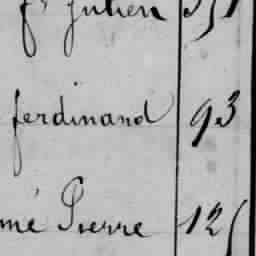 fs Julien 351
ferdinand 93
mé Pierre 125